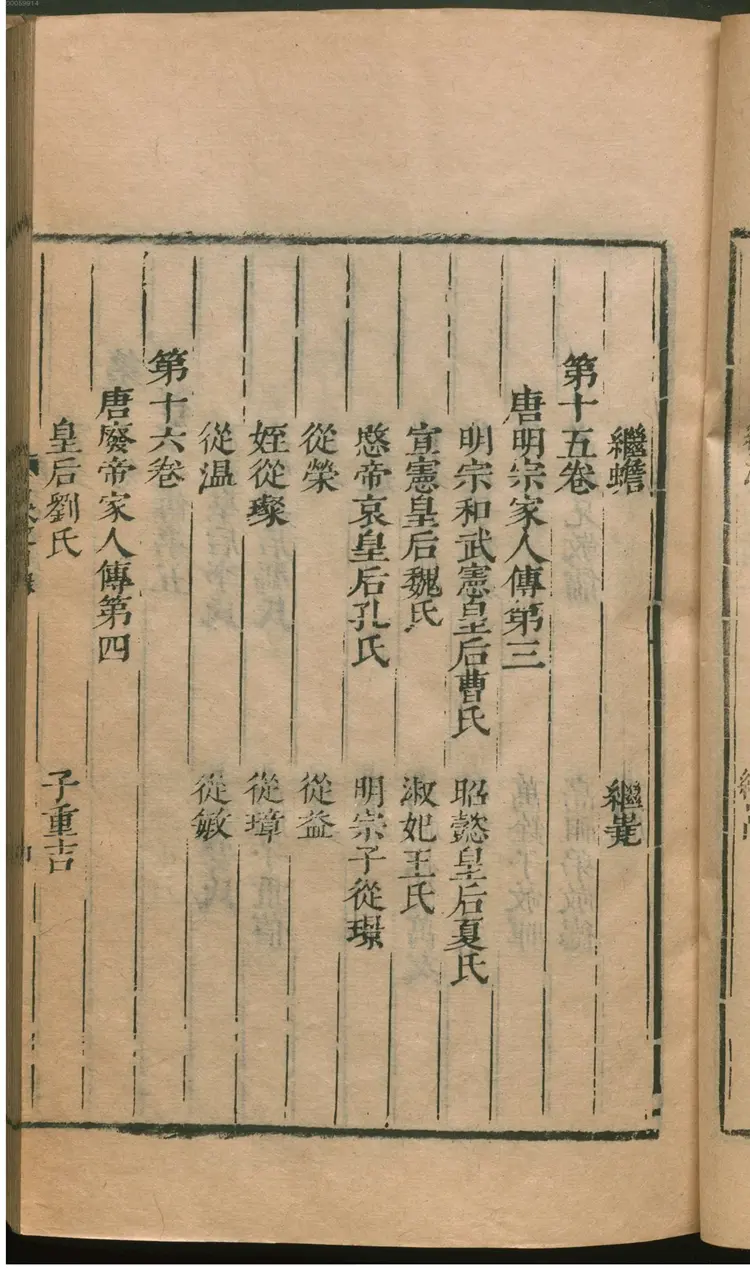 繼蟾 繼嵬
第十五卷
唐明宗家人傳第三
明宗和武憲皇后曹氏 昭懿皇后夏氏
宣憲皇后魏氏 淑妃王氏
愍帝哀皇后孔氏 明宗子從璟
從榮 從益
姪從璨 從璋
從温 從敏
第十六卷
唐廢帝家人傳第四
皇后劉氏 子重吉
00059814